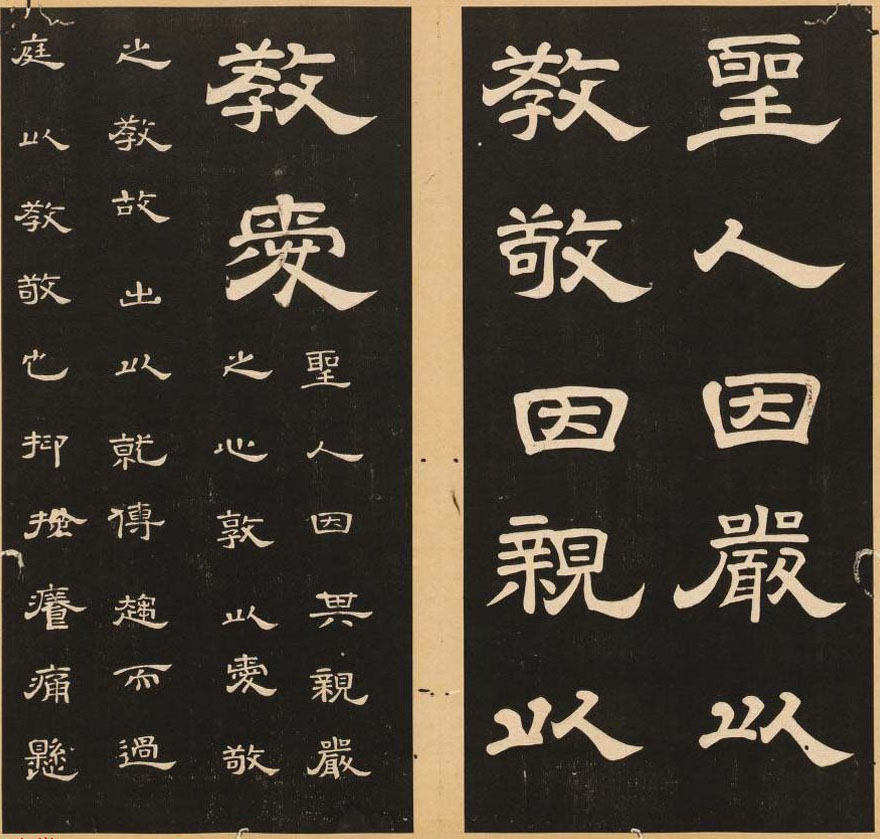 聖人因嚴以
教敬因親以
教愛
聖人因其親嚴
之心敦以愛敬
之教故出以就傅趨而過
庭以教敬也抑搔癢痛懸